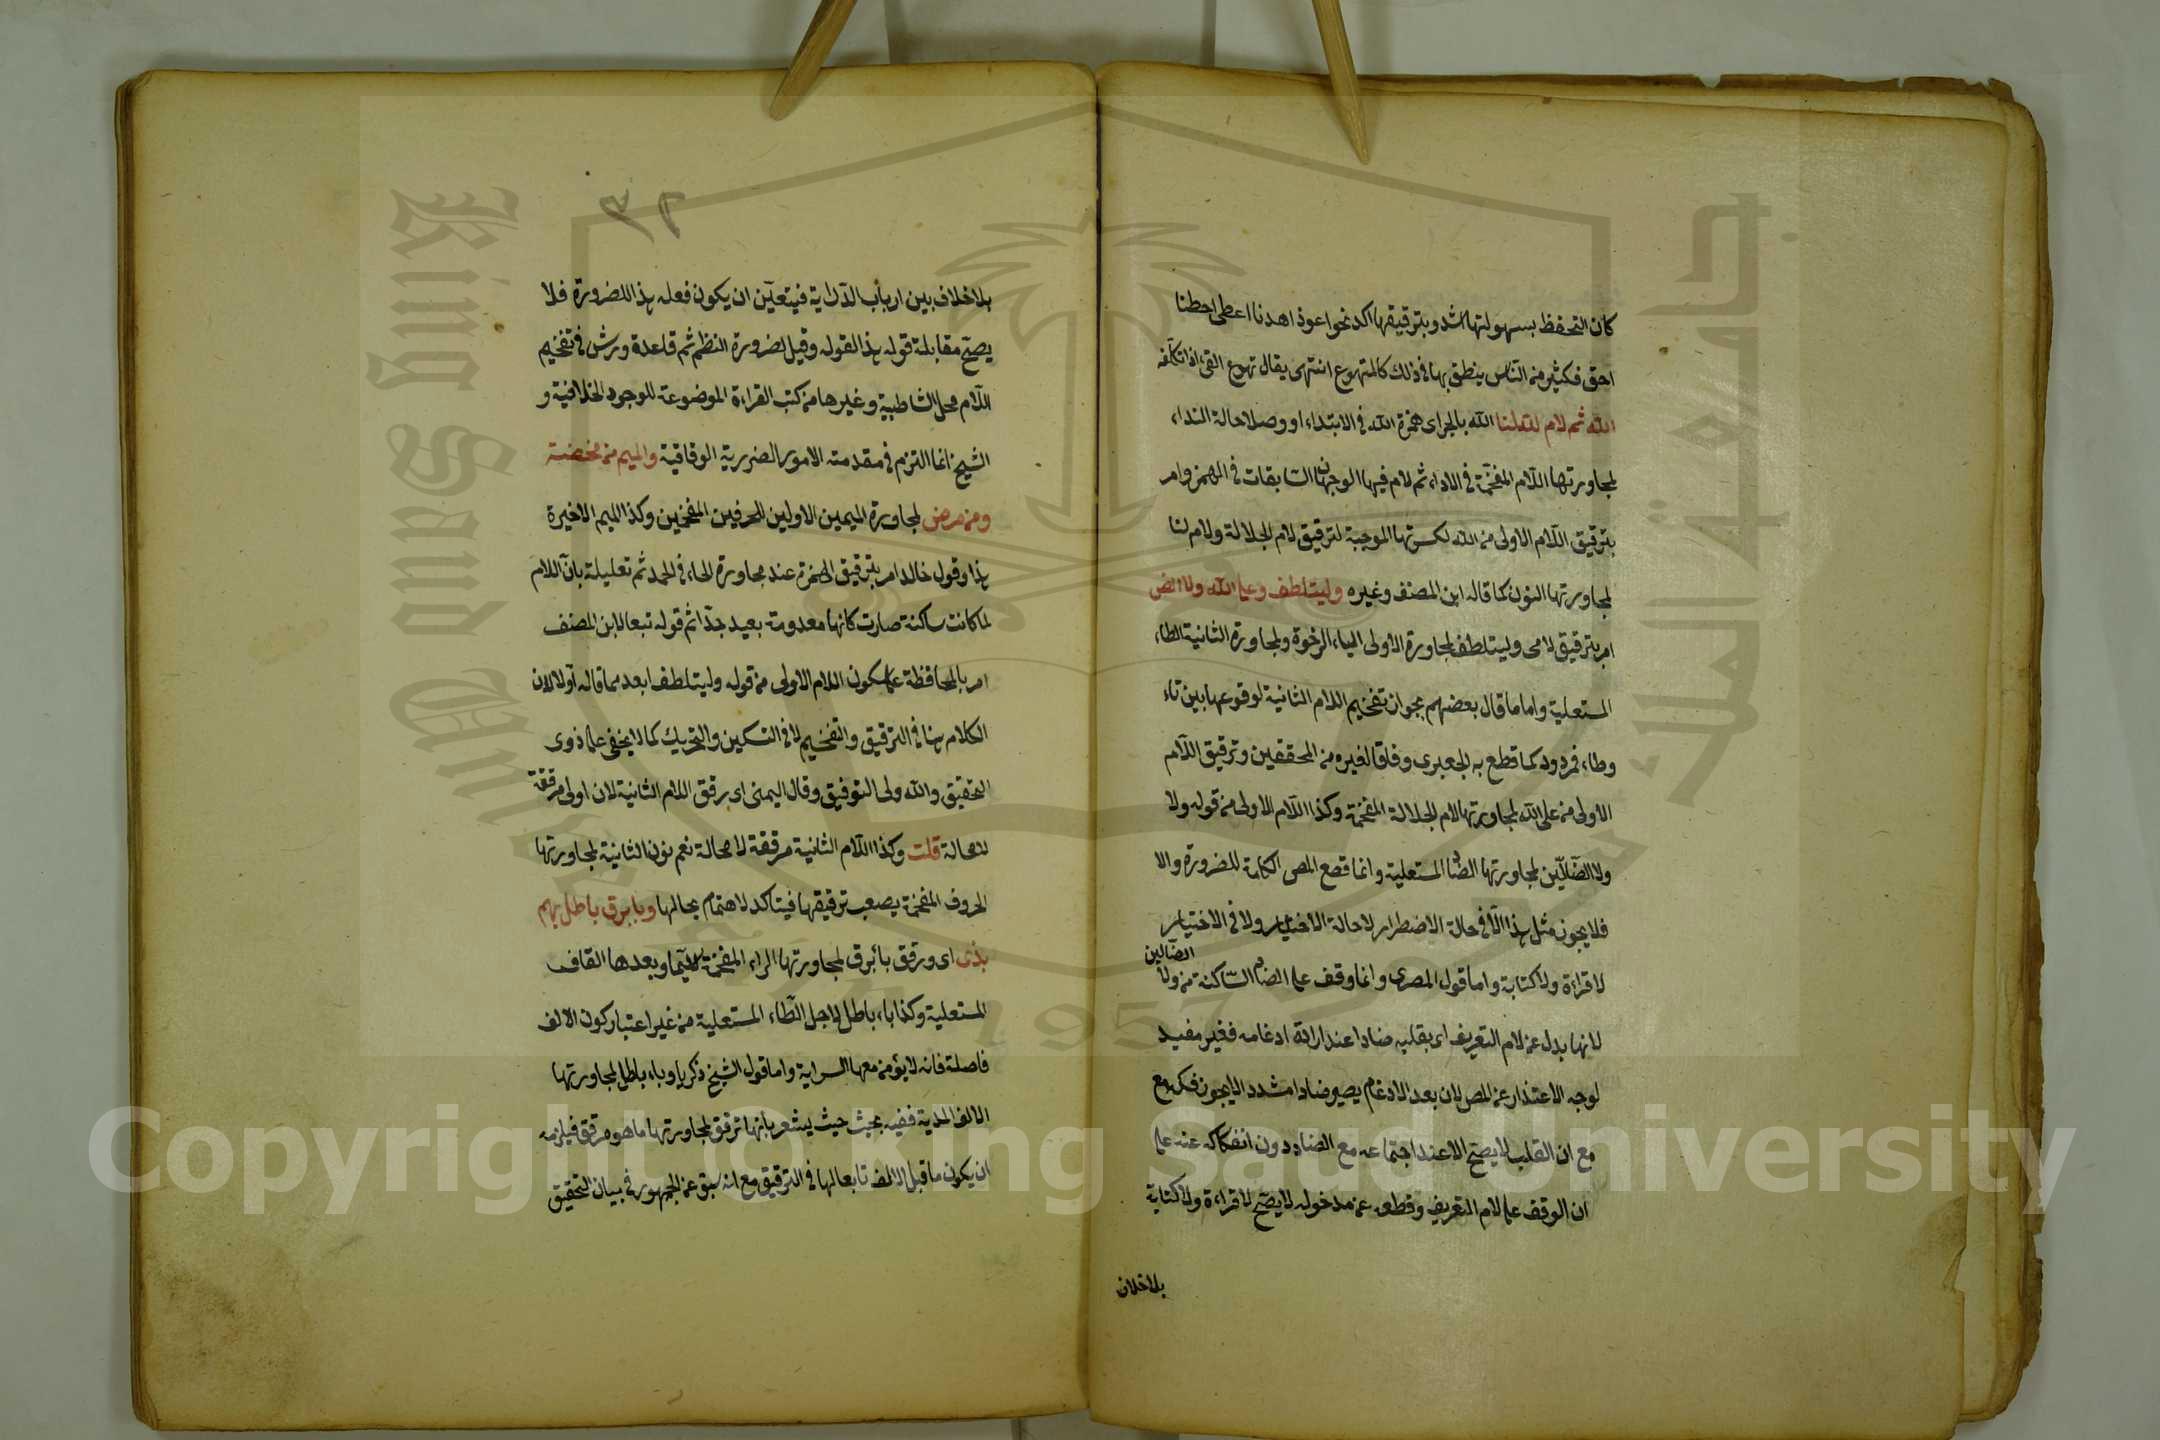 كان التحفظ بسهولتها اشد وبترقيقها اكد نحو اعوذ اهدنا اعطى احطنا
احق فكثير من الناس ينطق بها في ذلك كالمتهوع انتهى يقال تهوع القئ اذا تكلفه
الله ثم لام لله لنا الله بالجر اى همزة الله في الابتداء او وصلا حالة النداء
لمجاورتها اللام المفخمة في الاداء ثم لام فيها الوجهان السابقات في الهمز وامر
بترقيق اللام الاولى من الله لكسرتها الموجبة لترقيق لام الجلالة ولام لنا
لمجاورتها النون كما قاله ابن المصنف وغيره وليتلطف وعلى الله ولا الض
امر بترقيق لامى وليتلطف لمجاورة الاولى الياء الرخوة ولمجاورة الثانية الطاء
المستعلية واما ما قال بعضهم بجواز تفخيم اللام الثانية لوقوعها بين تاء
وطاء فمردود كما قطع به الجعبرى وفاقا لغيره من المحققين وترقيق اللام
الاولى من على الله لمجاورتها لام الجلالة المفخمة وكذا اللام الاولى من قوله ولا
ولا الضآلين لمجاورتها الضاد المستعلية وانما قطع المص الكلمة للضرورة والا
فلا يجوز مثل هذا الا في حالة الاضطرار لا حالة الاختيار ولا في الاختيار
لا قراءة ولا كتابة واما قول المصرى وانما وقف على الضاد الساكنة من ولا الضآلين
لانها بدل عن لام التعريف اى بقلبه ضادا عند ارادة ادغامه فغير مفيد
لوجه الاعتذار عن المص لان بعد الادغام يصير ضادا مشددا لا يجوز فكه مع
مع ان القلب لا يصح الا عند اجتماعه مع الضاد دون انفكاكه عنه على
ان الوقف على لام التعريف وقطعه عن مدخوله لا يصح لا قراءة ولا كتابة
بلا خلاف
٣٢
بلا خلاف بين ارباب الدراية فيتعين ان يكون فعله هذا للضرورة فلا
يصح مقابلة قوله هذا القوله وقيل لضرورة النظم ثم قاعدة ورش في تفخيم
اللام محل الشاطبية وغيرها من كتب القراءة الموضوعة للوجوه الخلافية و
الشيخ انما التزم في مقدمته الامور الضرورية الوفاقية والميم من مخمصة
ومن مرض لمجاورة الميمين الاوليين للحرفين المفخمين وكذا الميم الاخيرة
هذا وقول خالد امر بترقيق الهمزة عند مجاورة الحاء في الحمد ثم تعليله بان اللام
لما كانت ساكنة صارت كانها معدومة بعيد جدا ثم قوله تبعا لابن المصنف
امر بالمحافظة على سكون اللام الاولى من قوله وليتلطف ابعد مما قاله اولا لان
الكلام هنا في الترقيق والتفخيم لا في التسكين والتحريك كما لا يخفى على ذوى
التحقيق والله ولى التوفيق وقال اليمنى اى برقق اللام الثانية لان اولى مرققة
لا محالة قلت وكذا اللام الثانية مرققة لا محالة نعم نون الثانية لمجاورتها
الحروف المفخمة يصعب ترقيقها فيتاكد لاهتمام بحالها وبا برق باطل بهم
بذى اى ورقق باء برق لمجاورتها الراء المفخمة لا سيما وبعدها القاف
المستعلية وكذا باء باطل لاجل الطاء المستعلية من غير اعتبار كون الالف
فاصلة فانه لا يؤمن معها السراية واما قول الشيخ زكريا وباء باطل لمجاورتها
الالف المدية ففيه بحث حيث يشعر بانها ترقق لمجاورتها ما هو مرقق فيلزمه
ان يكون ما قبل الالف تابعا لها في الترقيق مع انه سبق عن الجمهور في بيان التحقيق
Copyright © King Saud University
King Saud University
جامعة الملك سعود
1957